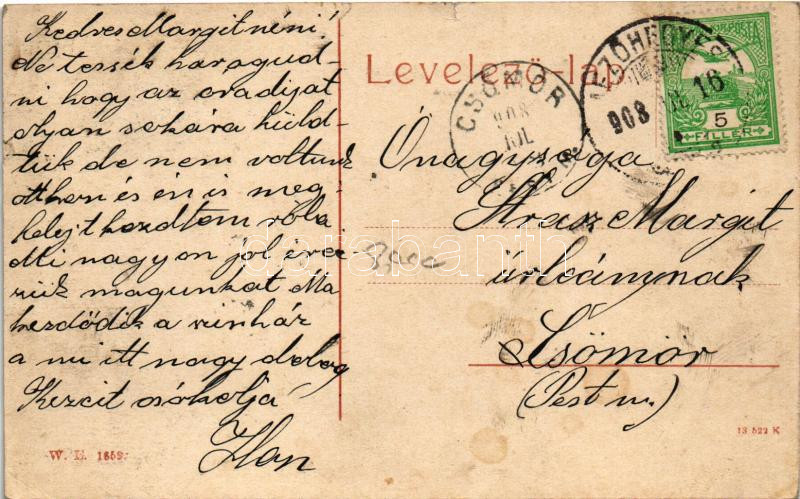 Kedves Margit néni!
Ne tessék haragud-
ni hogy az aradijat
olyan sokára küld-
tük de nem voltunk
otthon és én is meg-
felejtkeztem rola
Mi nagyon jol érez-
zük magunkat Ma
kezdődik a szinház
a mi itt nagy dolog
Kezeit csókolja
W. L. 1659.
Levelező-lap
CSÖMÖR
908
JUL
MEZŐHEGYES
908 JUL 16
5
FILLÉR
Őnagysága
Strasz Margit
úrleánynak
Csömör
(Pest m.)
13 522 K
darabanth